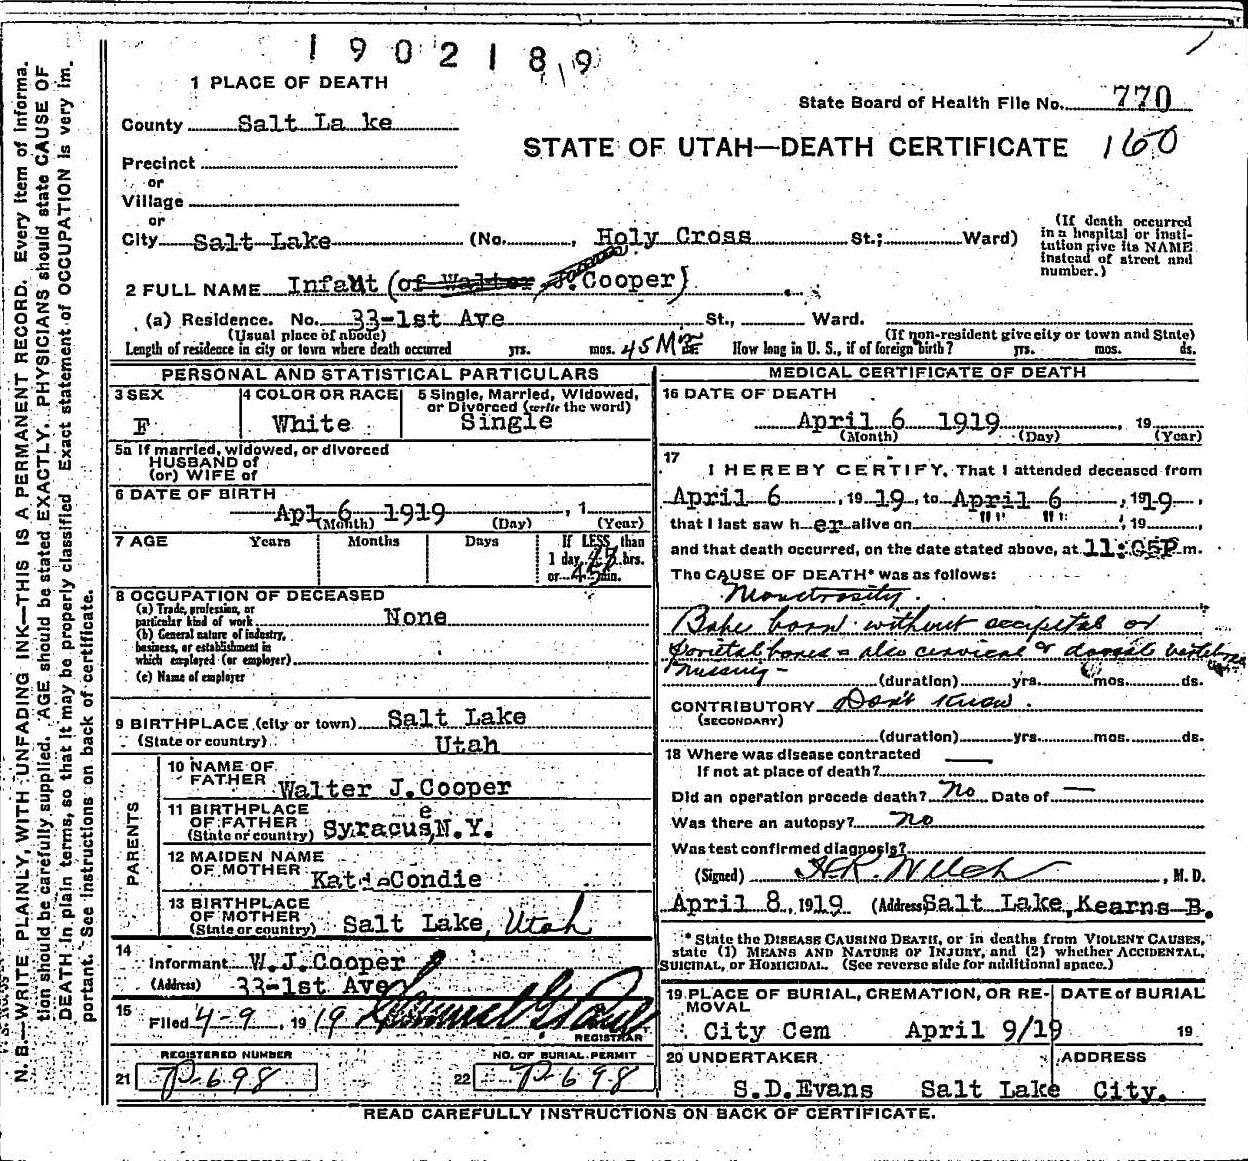 1902189
1 PLACE OF DEATH
State Board of Health File No. 770
County Salt La ke
STATE OF UTAH—DEATH CERTIFICATE 160
Precinct
or
Village
or
City Salt Lake (No. , Holy Cross St.; Ward)
(If death occurred in a hospital or institution give its NAME instead of street and number.)
2 FULL NAME Infant (of Walter J. Cooper)
(a) Residence. No. 33-1st Ave St., Ward.
(Usual place of abode) (If non-resident give city or town and State)
Length of residence in city or town where death occurred yrs. mos. 45 How long in U. S., if of foreign birth? yrs. mos. ds.
PERSONAL AND STATISTICAL PARTICULARS
3 SEX F
4 COLOR OR RACE White
5 Single, Married, Widowed, or Divorced (write the word) Single
5a If married, widowed, or divorced
HUSBAND of
(or) WIFE of
6 DATE OF BIRTH
Apl 6 1919 , 1
(Month) (Day) (Year)
7 AGE Years Months Days If LESS than
1 day, hrs.
or 45 min.
8 OCCUPATION OF DECEASED
(a) Trade, profession, or particular kind of work None
(b) General nature of industry, business, or establishment in which employed (or employer)
(c) Name of employer
9 BIRTHPLACE (city or town) Salt Lake
(State or country) Utah
PARENTS
10 NAME OF FATHER Walter J. Cooper
11 BIRTHPLACE OF FATHER (State or country) Syracuse, N.Y.
12 MAIDEN NAME OF MOTHER Katie Condie
13 BIRTHPLACE OF MOTHER (State or country) Salt Lake, Utah
14 Informant W.J. Cooper
(Address) 33-1st Ave
15 Filed 4-9, 1919
REGISTRAR
REGISTERED NUMBER NO. OF BURIAL PERMIT
21 P-698 22 P-698
MEDICAL CERTIFICATE OF DEATH
16 DATE OF DEATH
April 6 1919 , 19
(Month) (Day) (Year)
17 I HEREBY CERTIFY, That I attended deceased from
April 6, 1919, to April 6, 1919,
that I last saw her alive on " " , 19 ,
and that death occurred, on the date stated above, at 11:05P m.
The CAUSE OF DEATH* was as follows:
Monstrosity.
Babe born without occipital or
parietal bones - also cervical & dorsal vertebrae
missing -
(duration) yrs. mos. ds.
CONTRIBUTORY Don't Know.
(SECONDARY)
(duration) yrs. mos. ds.
18 Where was disease contracted
If not at place of death? —
Did an operation precede death? No Date of —
Was there an autopsy? no
Was test confirmed diagnosis?
(Signed) H.R. Welch, M. D.
April 8, 1919 (Address) Salt Lake, Kearns B.
* State the DISEASE CAUSING DEATH, or in deaths from VIOLENT CAUSES,
state (1) MEANS AND NATURE OF INJURY, and (2) whether ACCIDENTAL,
SUICIDAL, or HOMICIDAL. (See reverse side for additional space.)
19 PLACE OF BURIAL, CREMATION, OR REMOVAL DATE of BURIAL
City Cem April 9/19 19
20 UNDERTAKER ADDRESS
S.D. Evans Salt Lake City.
READ CAREFULLY INSTRUCTIONS ON BACK OF CERTIFICATE.
N. B.—WRITE PLAINLY, WITH UNFADING INK—THIS IS A PERMANENT RECORD. Every item of informa-
tion should be carefully supplied. AGE should be stated EXACTLY. PHYSICIANS should state CAUSE OF
DEATH in plain terms, so that it may be properly classified. Exact statement of OCCUPATION is very im-
portant. See instructions on back of certificate.